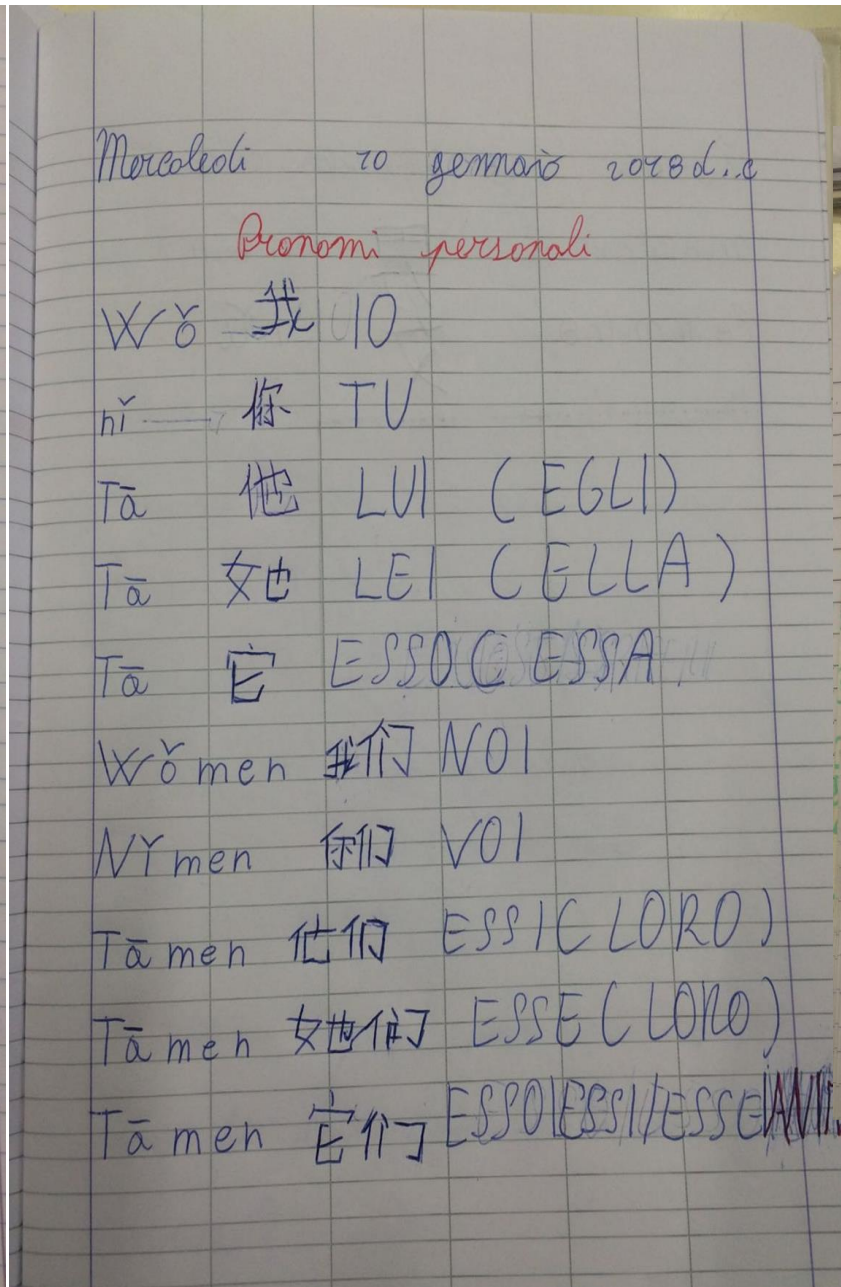 Mercoledi 10 gennaio 2018 d..c
Pronomi personali
Wǒ 我 IO
nǐ 你 TU
Tā 他 LUI (EGLI)
Tā 她 LEI (ELLA)
Tā 它 ESSO ( ESSA
Wǒmen 我们 NOI
Nǐmen 你们 VOI
Tāmen 他们 ESSI (LORO)
Tāmen 她他们 ESSE (LORO)
Tāmen 它们 ESSO|ESSI/ESSE